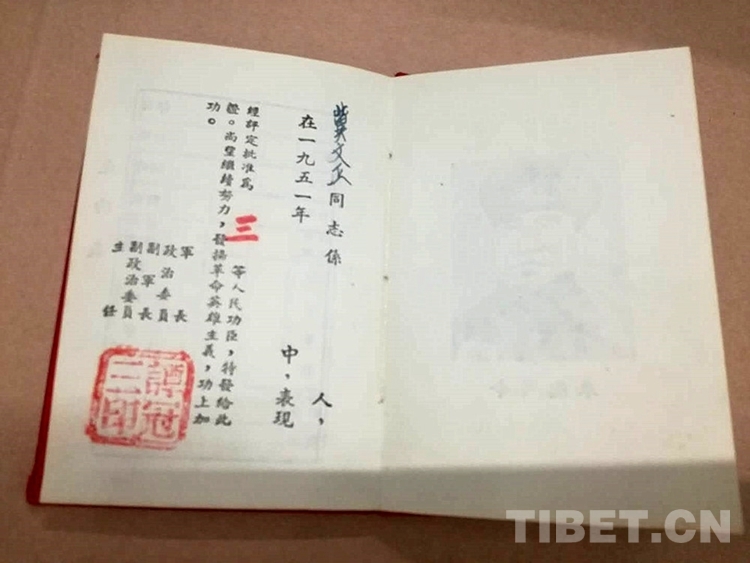 冀文正同志係 人，
在一九五一年 中，表現
經評定批准爲 三 等人民功臣，特發給此
證。尚望繼續努力，發揚革命英雄主義，功上加
功。
軍長
政治委員
副軍長
副政治委員
主任
譚冠三印
TIBET.CN